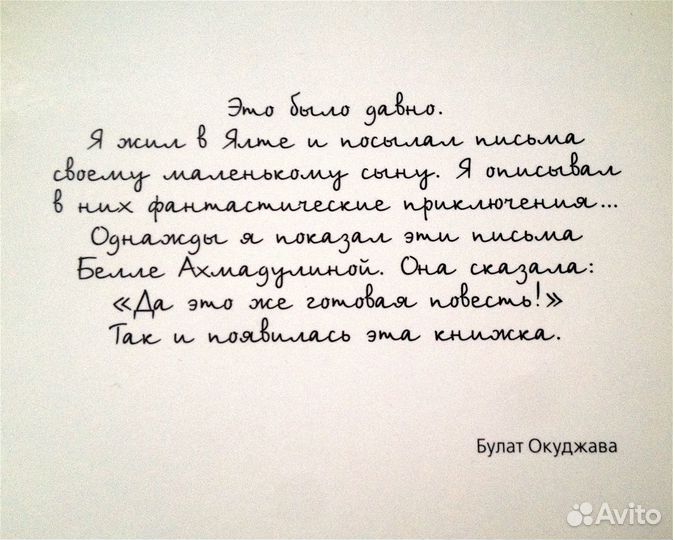 Это было давно.
Я жил в Ялте и посылал письма
своему маленькому сыну. Я описывал
в них фантастические приключения...
Однажды я показал эти письма
Белле Ахмадулиной. Она сказала:
«Да это же готовая повесть!»
Так и появилась эта книжка.
Булат Окуджава
Avito